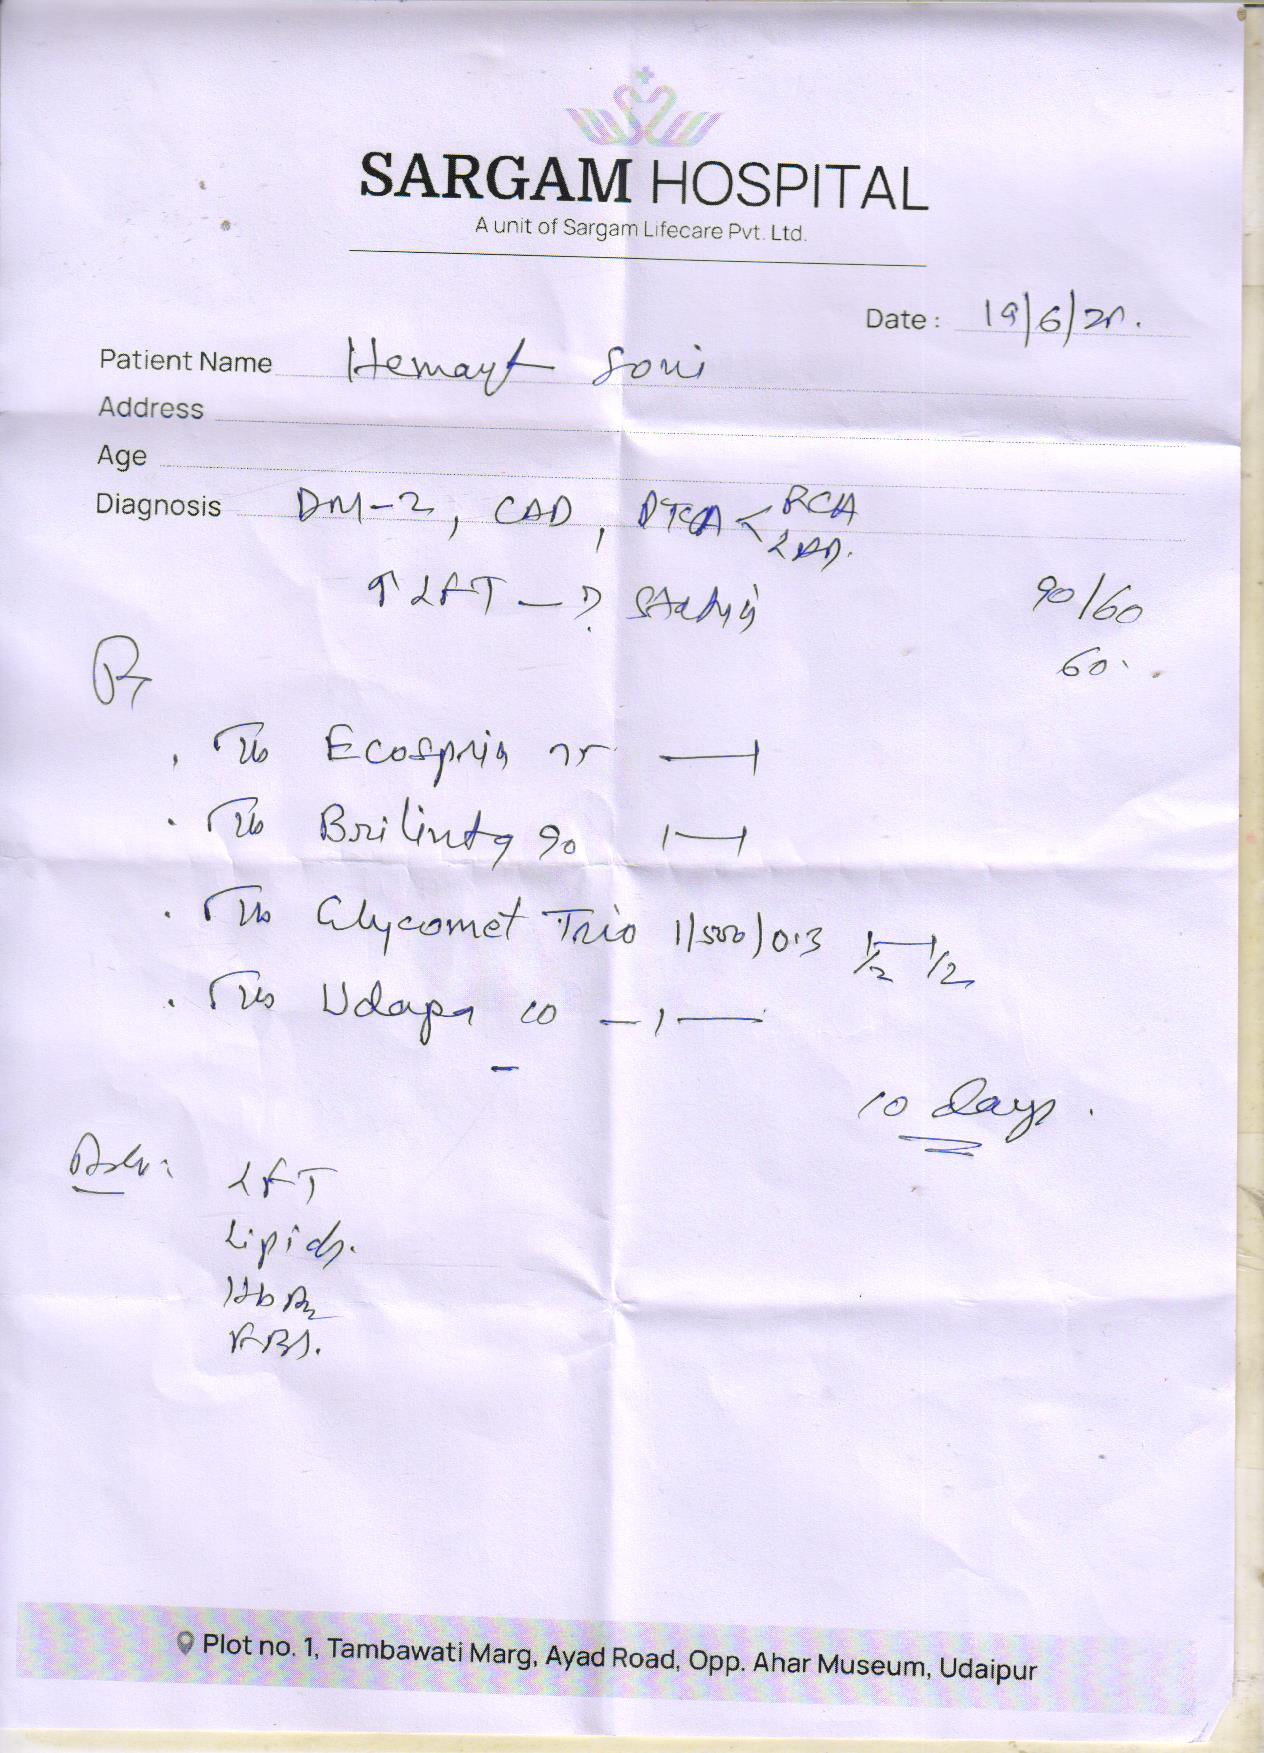 SARGAM HOSPITAL
A unit of Sargam Lifecare Pvt. Ltd.
Date : 19/6/25.
Patient Name Hemant Soni
Address
Age
Diagnosis DM-2, CAD, PTCA < RCA
LAD.
↑ LFT - ? Statin
90/60
60.
Rx
. Tab Ecosprin 75
. Tab Brilinta 90 1—1
. Tab Glycomet Trio 1/500/0.3 1/2 — 1/2
. Tab Udapa 10 — 1 —
10 days.
Adv:
LFT
Lipids.
HbA1c
FBS.
Plot no. 1, Tambawati Marg, Ayad Road, Opp. Ahar Museum, Udaipur